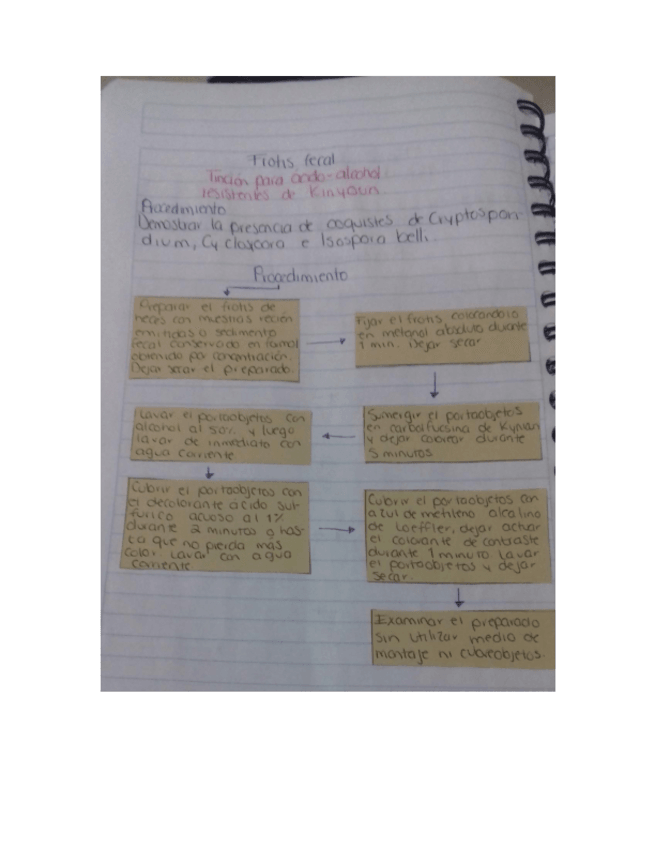 Frotis fecal
Tinción para ácido-alcohol
resistentes de Kinyoun
Procedimiento
Demostrar la presencia de ooquistes de Cryptospori
dium, Cycloxpora e Isospora belli.
Procedimiento
Preparar el frotis de
heces con muestras recién
emitidas o sedimento
fecal conservado en formol
obtenido por concentración.
Dejar secar el preparado.
Fijar el frotis colorandolo
en metanol absoluto durante
1 min. Dejar secar
Sumergir el portaobjetos
en carbolfucsina de Kynian
y dejar colorear durante
5 minutos
Lavar el portaobjetos con
alcohol al 50% y luego
lavar de inmediato con
agua corriente
Cubrir el portaobjetos con
el decolorante ácido sul
furico acuoso al 1%
durante 2 minutos o has-
ta que no pierda más
color. Lavar con agua
corriente
Cubrir el portaobjetos con
azul de metileno alcalino
de Loeffler, dejar actuar
el colorante de contraste
durante 1 minuto Lavar
el portaobjetos y dejar
secar.
Examinar el preparado
sin utilizar medio de
montaje ni cubreobjetos.